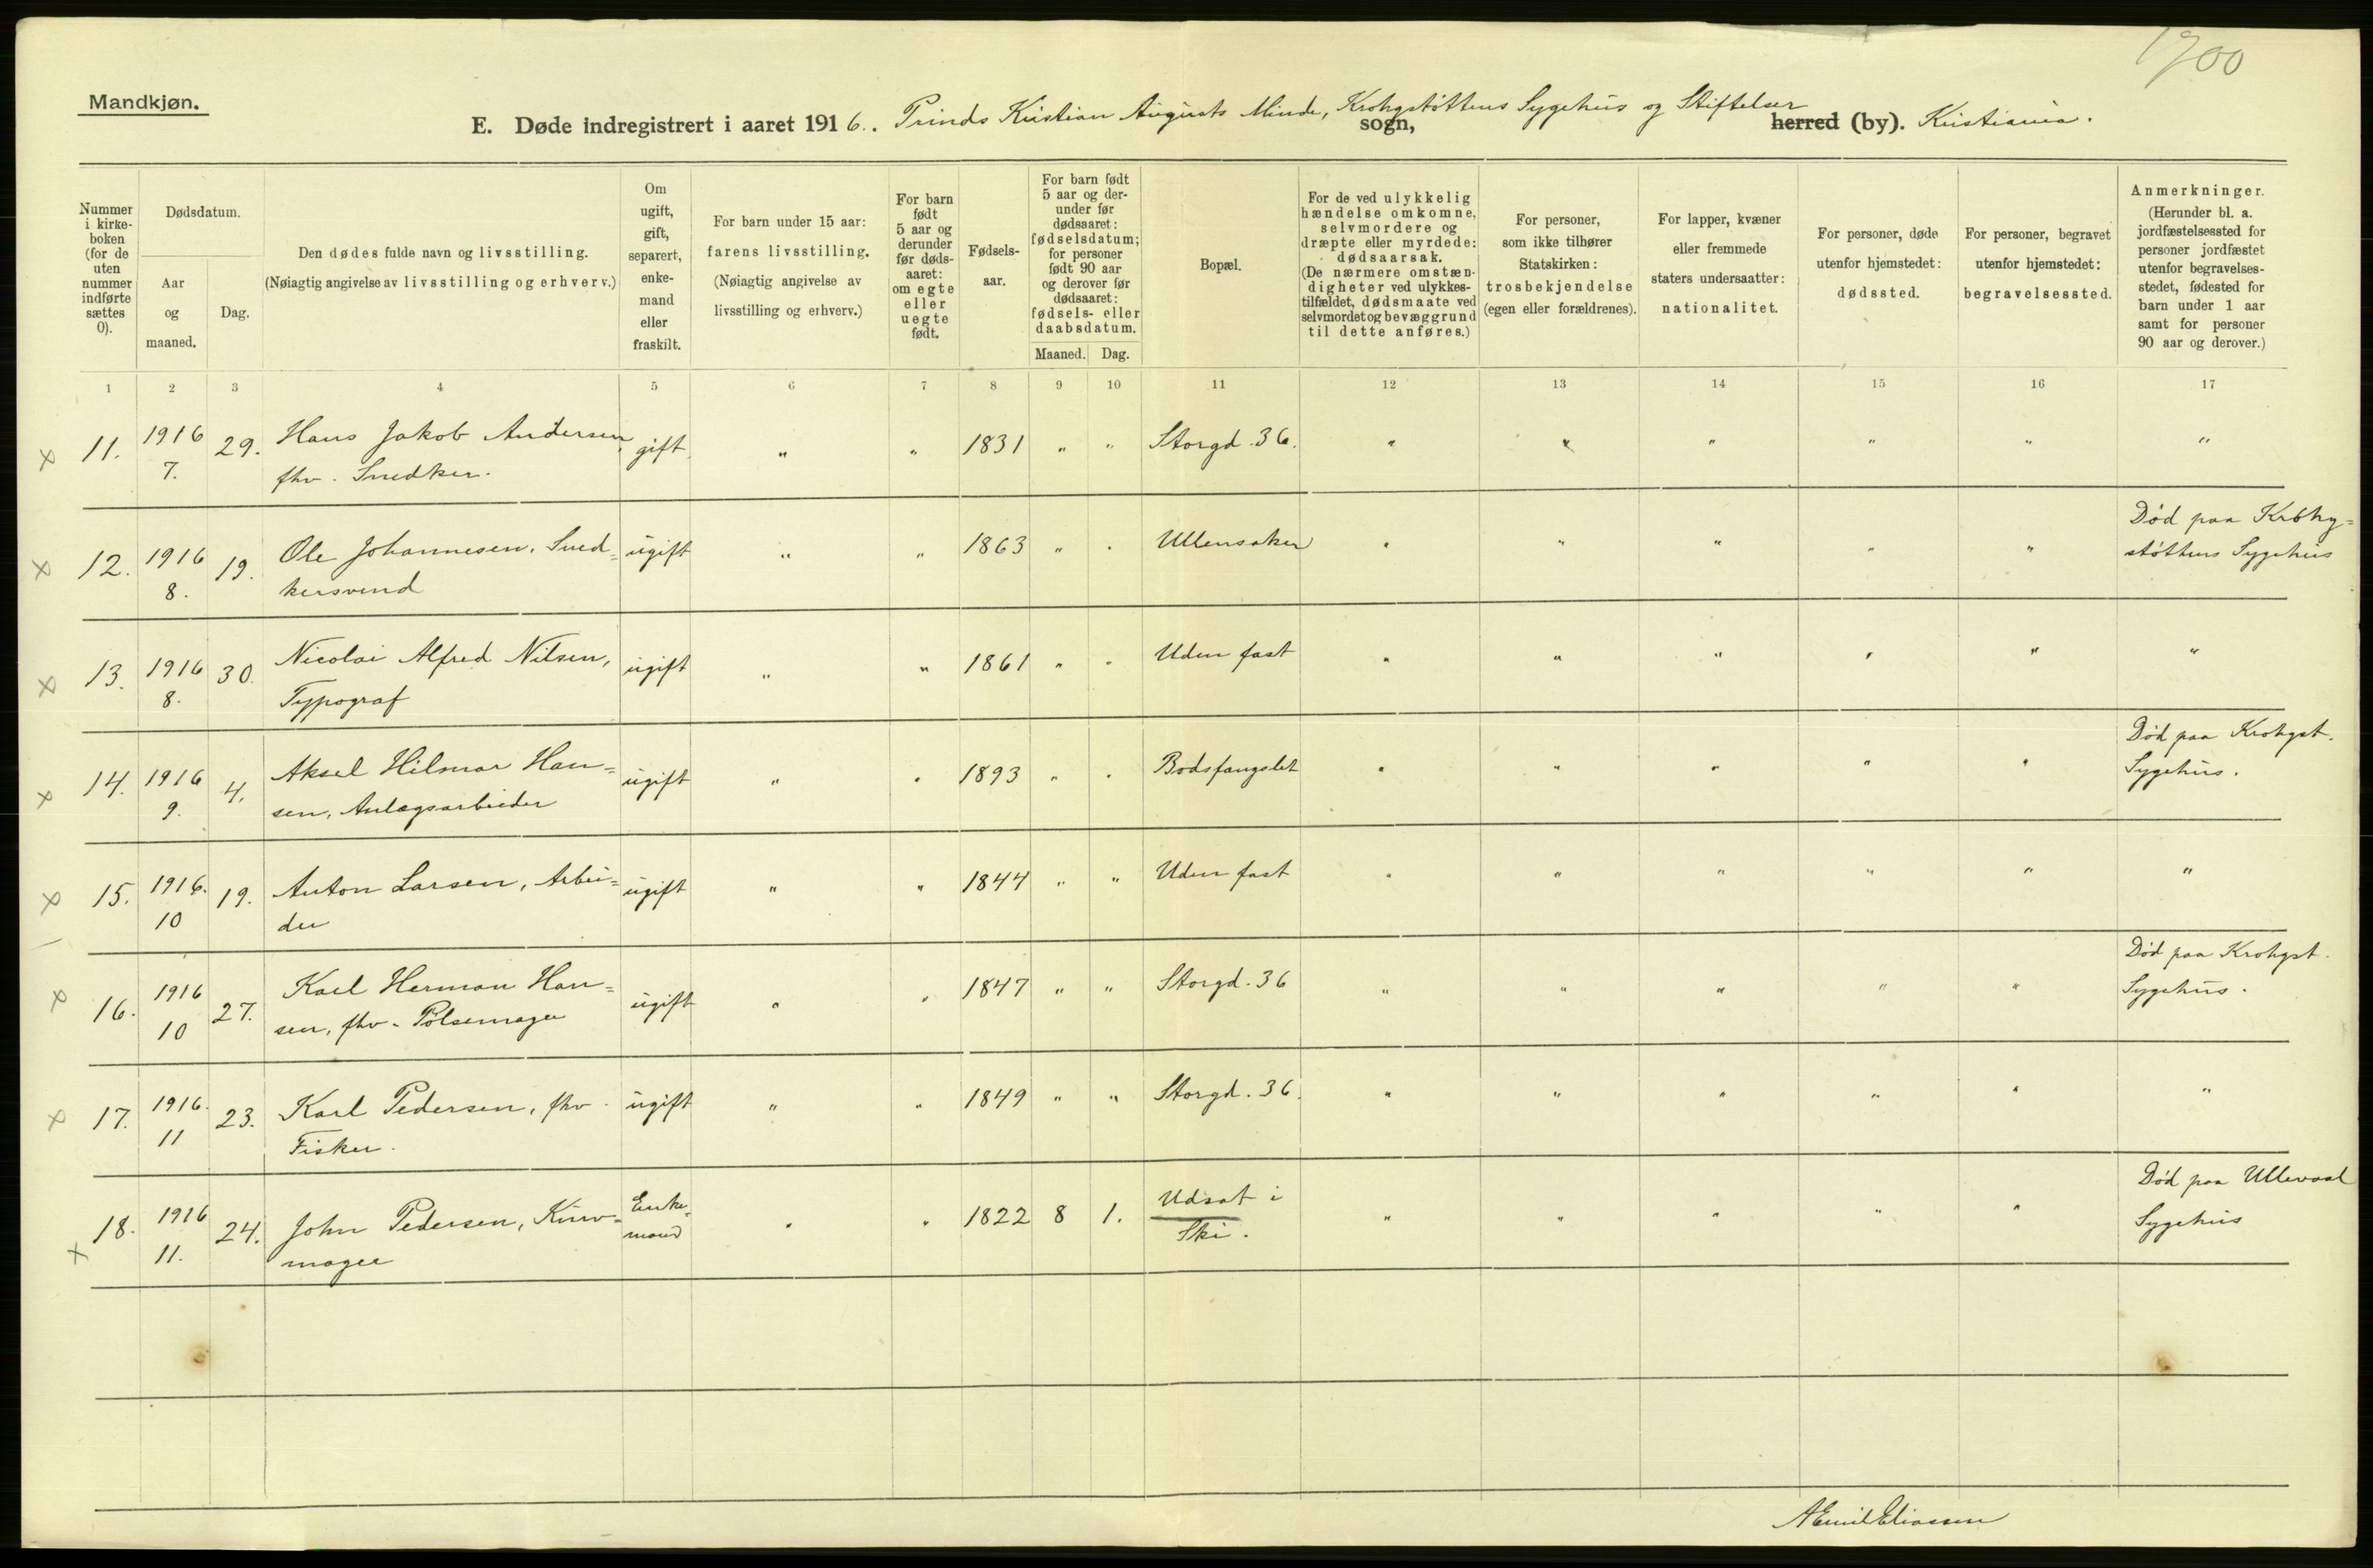 1900
Mandkjøn.
E. Døde indregistrert i aaret 1916. Prinds Kristian Augusts Minde, Krohgstøttens Sygehus og Stiftelser sogn, herred (by). Kristiania.
Nummer i kirkeboken (for de uten nummer indførte sættes 0).
Dødsdatum.
Aar og maaned.
Dag.
Den dødes fulde navn og livsstilling.
(Nøiagtig angivelse av livsstilling og erhverv.)
Om ugift, gift, separert, enkemand eller fraskilt.
For barn under 15 aar: farens livsstilling.
(Nøiagtig angivelse av livsstilling og erhverv.)
For barn født 5 aar og derunder før dødsaaret: om egte eller uegte født.
Fødselsaar.
For barn født 5 aar og derunder før dødsaaret: fødselsdatum; for personer født 90 aar og derover før dødsaaret: fødsels- eller daabsdatum.
Maaned. Dag.
Bopæl.
For de ved ulykkelig hændelse omkomne, selvmordere og dræpte eller myrdede: dødsaarsak.
(De nærmere omstændigheter ved ulykkestilfældet, dødsmaate ved selvmordet og bevæggrund til dette anføres.)
For personer, som ikke tilhører Statskirken: trosbekjendelse (egen eller forældrenes).
For lapper, kvæner eller fremmede staters undersaatter: nationalitet.
For personer, døde utenfor hjemstedet: dødssted.
For personer, begravet utenfor hjemstedet: begravelsessted.
Anmerkninger.
(Herunder bl. a. jordfæstelsessted for personer jordfæstet utenfor begravelsesstedet, fødested for barn under 1 aar samt for personer 90 aar og derover.)
1 2 3 4 5 6 7 8 9 10 11 12 13 14 15 16 17
x 11. 1916 7. 29. Hans Jakob Andersen, fhv. Snedker. gift " " 1831 " " Storgd. 36. " " " " " "
x 12. 1916 8. 19. Ole Johannesen, Sned=kersvend ugift " " 1863 " " Ullensaker " " " " " Død paa Krohg=støttens Sygehus
x 13. 1916 8. 30. Nicolai Alfred Nilsen, Typograf ugift " " 1861 " " Uden fast " " " " " "
x 14. 1916 9. 4. Aksel Hilmar Han=sen, Anlægsarbeider ugift " " 1893 " " Bodsfangslet " " " " " Død paa Krohgst. Sygehus.
x 15. 1916. 10 19. Anton Larsen, Arbei=der ugift " " 1844 " " Uden fast " " " " " "
x 16. 1916 10 27. Karl Herman Han=sen, fhv. Pølsemager ugift " " 1847 " " Storgd. 36 " " " " " Død paa Krohgst. Sygehus.
x 17. 1916. 11 23. Karl Pedersen, fhv. Fisker. ugift " " 1849 " " Storgd. 36. " " " " " "
x 18. 1916 11. 24. John Pedersen, Kurv=mager Enke=mand " " 1822 8 1. Udsat i Ski. " " " " " Død paa Ullevaal Sygehus
A Emil Eliassen